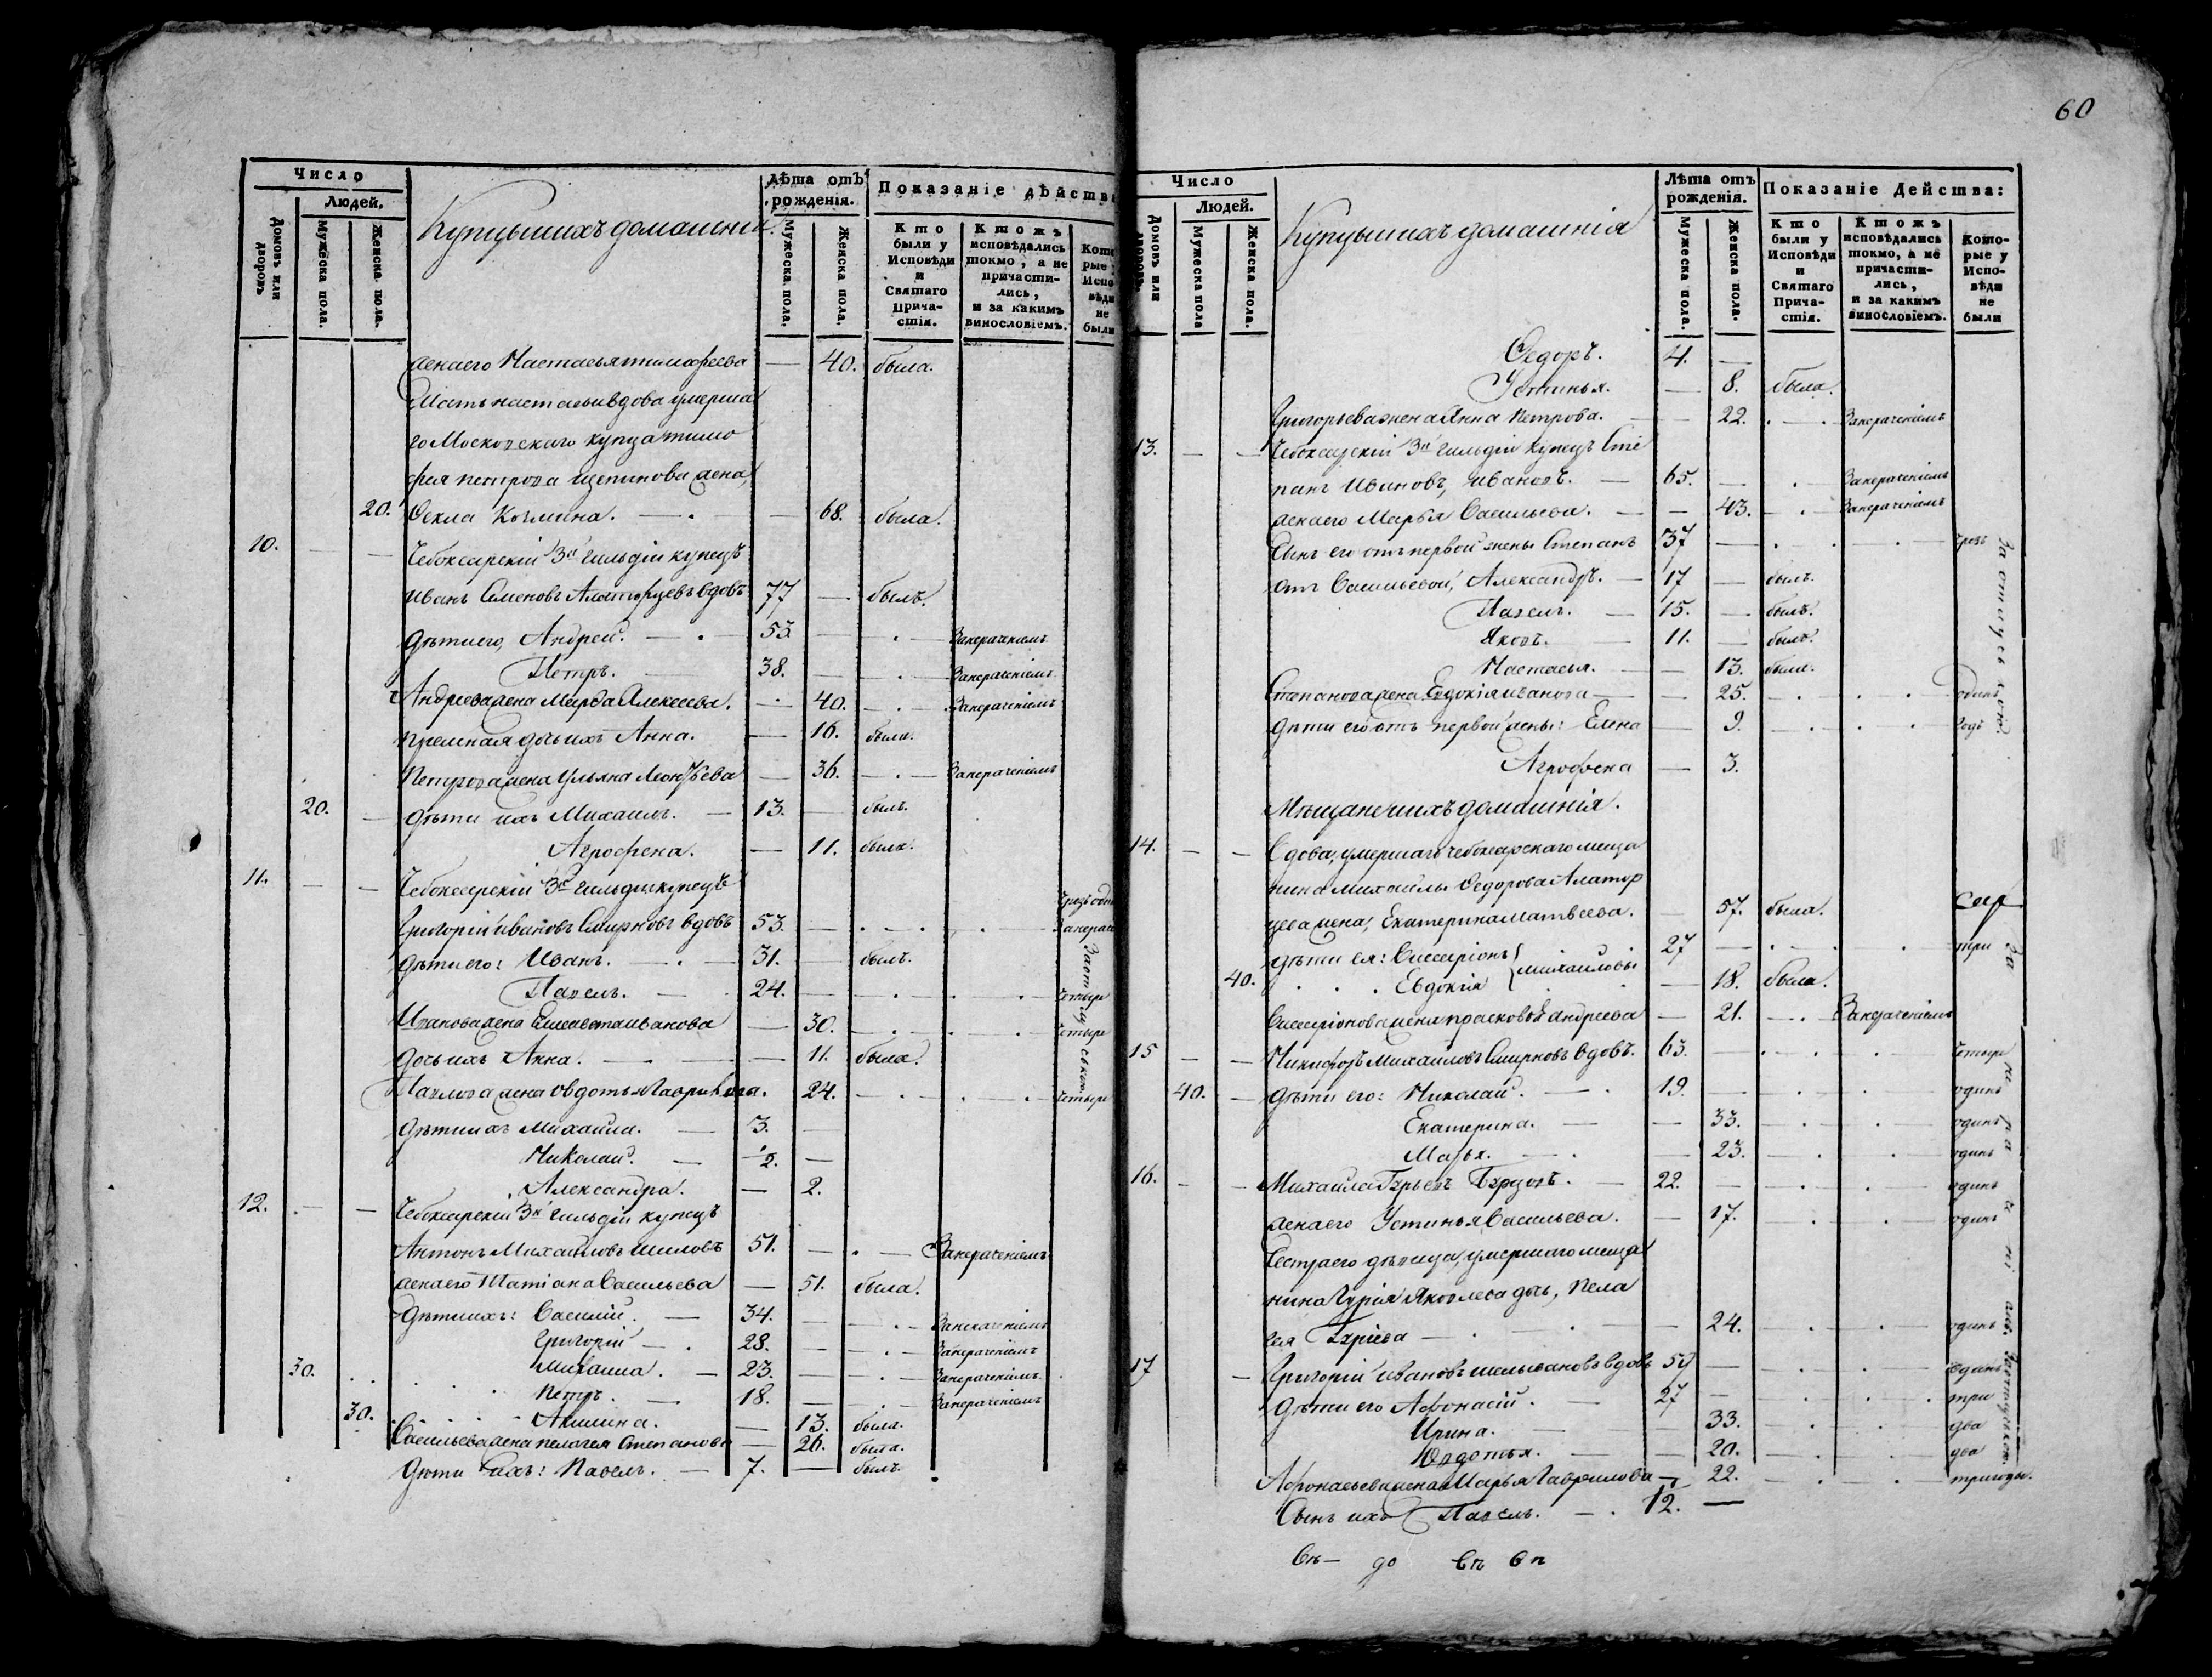 60
Число
Людей.
Домовъ или дворовъ.
Мужеска пола.
Женска пола.
Купцы и ихъ домашнія.
Лѣта отъ рожденія.
Мужеска пола.
Женска пола.
Показаніе дѣйств
Кто были у Исповѣди и Святаго Прича-стія.
Ктожъ исповѣдались токмо, а не причасти-лись, и за какимъ винословіемъ.
Кото рые Испо вѣди не были
жена его Настасья тимофеева — 40. была.
Мать настасьи вдова умерша
го Московскаго купца тимо
фея петрова щепинова жена,
20. Фекла Козмина. — . — — 68. была.
10. — — Чебоксарскій 3й гильдіи купецъ
иванъ Семеновъ Алаторцевъ вдовъ 77 — былъ.
дѣти его, Андрей. — . — 53. — . — Занераченіемъ
Петръ. — 38. — . — Занераченіемъ
Андреева жена Марѳа Алексеева. — 40. — . — Занераченіемъ
приемная дочь ихъ Анна. — 16. была.
Петрова жена Ульяна Леонтьева — 36. — . — Занераченіемъ
20. — дѣти ихъ Михаилъ. — 13. — былъ.
Агрофена. — 11. была.
11. — — Чебоксарскій 3й гильдіи купецъ
Григорій ивановъ Смирновъ вдовъ 53. — . — . .
дѣти его: Иванъ. — . — 31. — былъ.
Павелъ. — 24. — — . . . четыре
Иванова жена Елисавета иванова — 30. — . . . четыре
дочь ихъ Анна. — — — 11. была.
Павлова жена Овдотья Гаврилова. 24. — . — . — . четыре
дѣти ихъ Михаила. — 3. —
Николай. — 2. —
Александра. — 2.
12. . — — Чебоксарскій 3й гильдіи купецъ
Антонъ Михайловъ Шиловъ 51. — . — Занераченіемъ
жена его Татіана Васильева — 51. была.
дѣти ихъ: Василій. — 34. — — . — Занераченіемъ
Григорій — . 28. — — . — Занераченіемъ
30. . . Михаила. — 23. — . — Занераченіемъ.
Петръ. — 18. — . — Занераченіемъ
30. Акилина. — 13. была.
Васильева жена пелагея Степанова — 26. была.
дѣти ихъ: Павелъ. — 7. — былъ.
Число
Людей.
Домовъ или дворовъ.
Мужеска пола
Женска пола.
Купцы и ихъ домашнія
Лѣта отъ рожденія.
Мужеска пола.
Женска пола.
Показаніе Дейсmва:
Кто были у Исповѣди и Святаго Прича-стія.
Ктожъ исповѣдались токмо, а не причасти-лись, и за какимъ винословіемъ.
Кото-рые у Испо-вѣди не были
Федоръ. 4. —
Устинья. — 8. была.
Григорьева жена Анна Петрова. — — 22. . — . Занераченіемъ
13. — — Чебоксарскій 3й гильдіи купецъ Сте
панъ Ивановъ, ивановъ. — 65. — . Занераченіемъ
жена его Марья Васильева. — — 43. — . Занераченіемъ
Сынъ его отъ первой жены Степанъ 37 — . . . —
отъ Васильевой, Александръ. — 17 — былъ.
Павелъ. — 15. — былъ.
Яковъ. — 11. — былъ.
Настасья. — — 13. была.
Степанова жена Евдокія иванова — — 25. — . . . одинъ
дѣти его отъ первой жены: Елена — 9. — . . . годъ
Агрофена — 3.
Мѣщане и ихъ домашнія.
14. — — Вдова, умершаго чебоксарскаго меща
нина михайлы Федорова Алатор
цева жена, Екатерина матвеева. — 57. была.
дѣти ея: Виссаріонъ } михайловы 27 — . . . . три
40. . . . Евдокія — 18. была.
Виссаріонова жена прасковья андреева — 21. — . . Занераченіемъ
15 — — Никифоръ михаиловъ Смирновъ вдовъ. 63. — . . . . четыре
40. — дѣти его: Николай. — . 19. — . . одинъ
Екатерина. — — 33. — . . — одинъ
Марья. — . — 23. — . . — одинъ
16. — — Михаила Гурьевъ Бурцовъ. — 22. — . . — одинъ
жена его Устинья Васильева. — 17. . . — одинъ
Сестра его дѣвица, умершаго меща
нина Гурія Яковлева дочь, Пела
гея Гуріева — . — 24. . . — одинъ
17 — Григорій ивановъ шелывановъ вдовъ 59 — . . — одинъ
дѣти его Афонасій. — 27 — . . . три
Ирина. — — 33. — . . — два
Овдотья. — — 20. — . . — два
Афонасьева жена Марья Гаврилова — 22. — . . три годы.
Сынъ ихъ Павелъ. — . 12. —